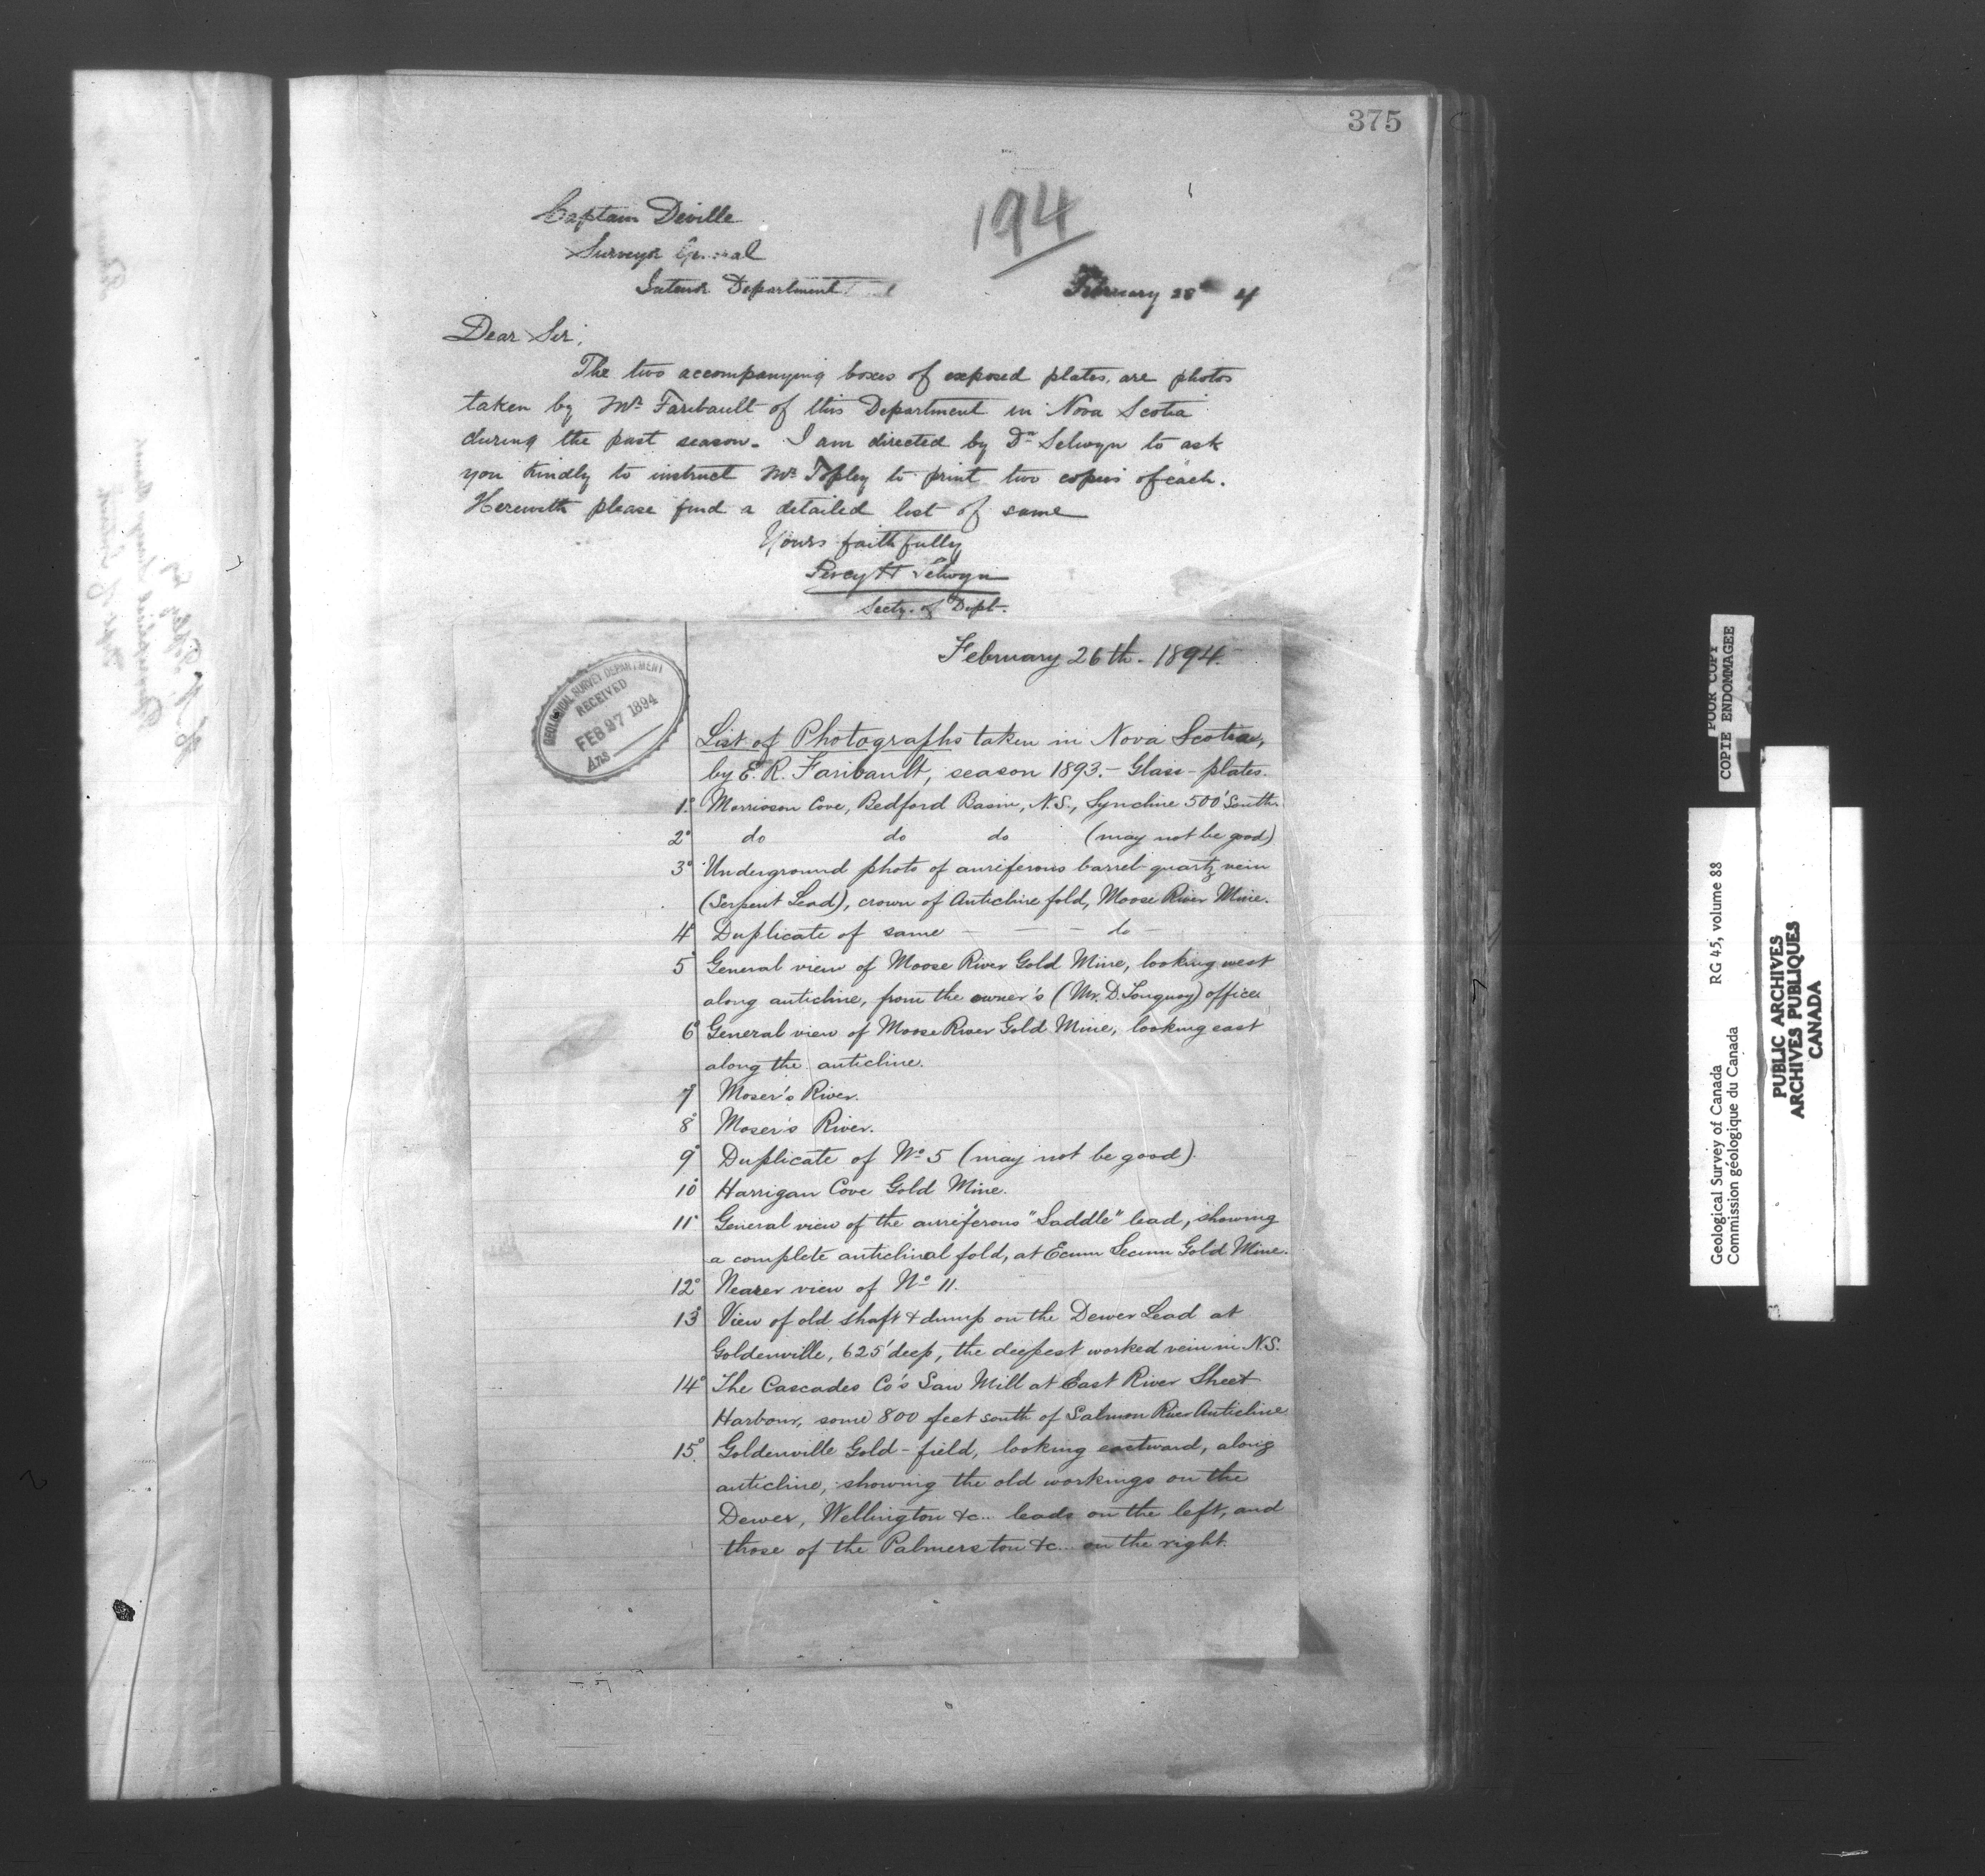 375
194
Captain Deville
Surveyor General
Interior Department
February 28th 4
Dear Sir,
The two accompanying boxes of exposed plates, are photos
taken by Mr. Faribault of this Department in Nova Scotia
during the past season. I am directed by Dr Selwyn to ask
you kindly to instruct Mr Topley to print two copies of each.
Herewith please find a detailed list of same
Yours faithfully
Percy H Selwyn
Secty. of Dept.
GEOLOGICAL SURVEY DEPARTMENT
RECEIVED
FEB 27 1894
Ans
February 26th. 1894.
List of Photographs taken in Nova Scotia,
by E. R. Faribault, season 1893. - Glass-plates.
1° Morrison Cove, Bedford Basin, N.S., Syncline 500' South.
2° do do do (may not be good)
3° Underground photo of auriferous barrel-quartz vein
(Serpent Lead), crown of Anticline fold, Moose River Mine.
4° Duplicate of same - - - do -
5° General view of Moose River Gold Mine, looking west
along anticline, from the owner's (Mr. D. Touquoy) office.
6° General view of Moose River Gold Mine, looking east
along the anticline.
7° Moser's River.
8° Moser's River.
9° Duplicate of No 5 (may not be good).
10° Harrigan Cove Gold Mine.
11° General view of the auriferous "Saddle" lead, showing
a complete anticlinal fold, at Ecum Secum Gold Mine.
12° Nearer view of No 11.
13° View of old shaft & dump on the Dewer Lead at
Goldenville, 625' deep, the deepest worked vein in N.S.
14° The Cascades Co's Saw Mill at East River Sheet
Harbour, some 800 feet south of Salmon River Anticline
15° Goldenville Gold-field, looking eastward, along
anticline, showing the old workings on the
Dewer, Wellington &c... leads on the left, and
those of the Palmerston &c... on the right.
POOR COPY
COPIE ENDOMMAGEE
Geological Survey of Canada RG 45, volume 88
Commission géologique du Canada
PUBLIC ARCHIVES
ARCHIVES PUBLIQUES
CANADA